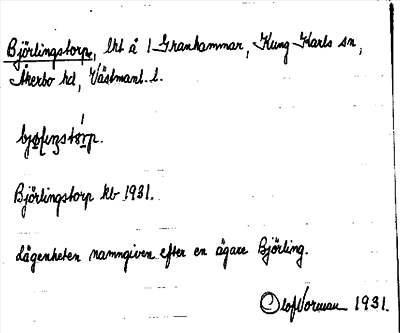 Björlingstorp, lht å 1 Granhammar, Kung Karls sn,
Åkerbo hd, Västmanl. l.
Björlingstorp kb 1931.
Lägenheten namngiven efter en ägare Björling.
Olof Vorman 1931.